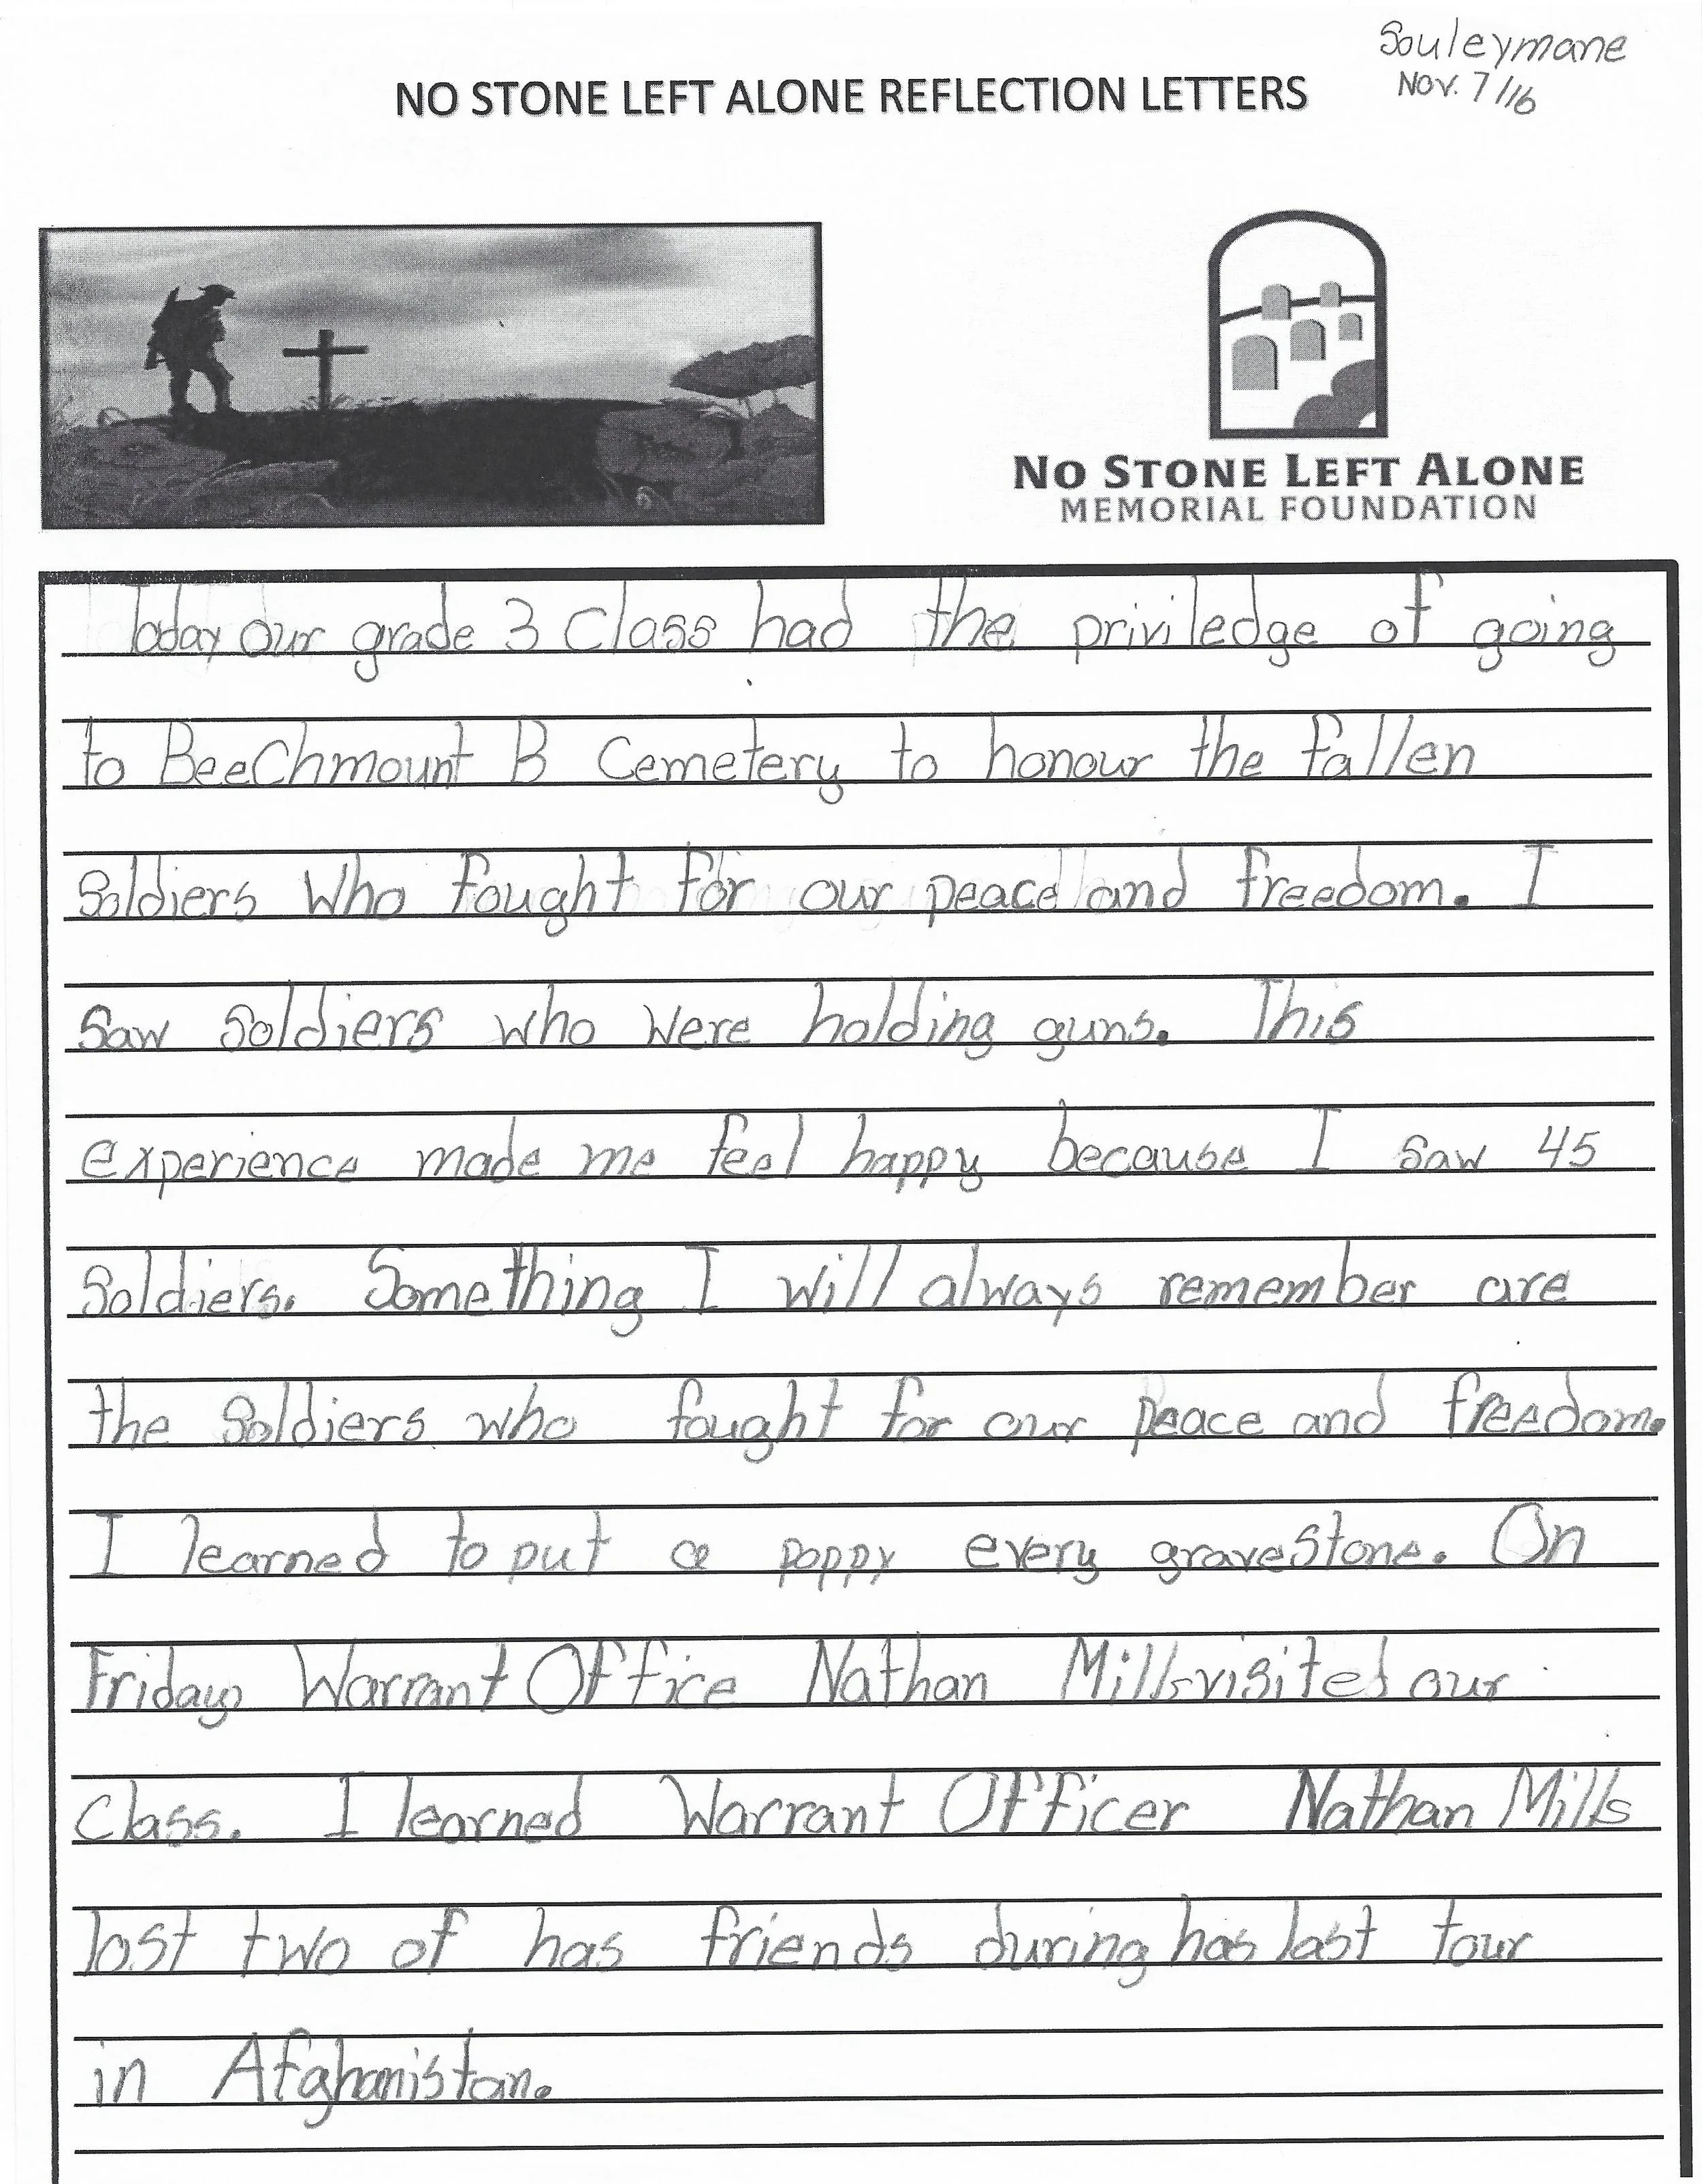 Souleymane
Nov. 7/16
NO STONE LEFT ALONE REFLECTION LETTERS
NO STONE LEFT ALONE
MEMORIAL FOUNDATION
Today our grade 3 class had the priviledge of going
to BeeChmount B Cemetery to honour the fallen
Soldiers who fought for our peace and freedom. I
saw soldiers who were holding guns. This
experience made me feel happy because I saw 45
Soldiers. Something I will always remember are
the Soldiers who fought for our peace and freedom.
I learned to put a poppy every graveStone. On
Friday Warrant Office Nathan Mills visited our
Class. I learned Warrant Officer Nathan Mills
lost two of has friends during has last tour
in Afghanistan.